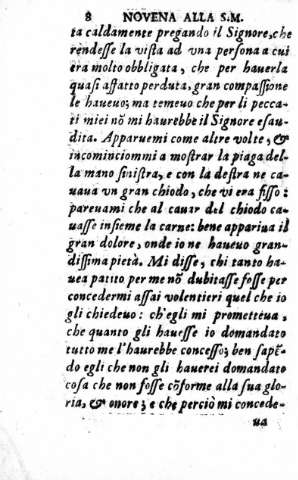 8 NOVENA ALLA S.M.
ta caldamente pregando il Signore, che
rendesse la vista ad vna persona a cui
era molto obbligata, che per hauerla
quasi affatto perduta, gran compassione
le haueuo; ma temeuo che per li pecca-
ti miei nō mi haurebbe il Signore esau-
dita. Apparuemi come altre volte, &
incominciommi a mostrar la piaga del-
la mano sinistra, e con la destra ne ca-
uaua vn gran chiodo, che vi era fisso:
pareuami che al cauar del chiodo ca-
uasse insieme la carne: bene appariua il
gran dolore, onde io ne haueuo gran-
dissima pietà. Mi disse, chi tanto ha-
uea patito per me nō dubitasse fosse per
concedermi assai volentieri quel che io
gli chiedeuo: ch'egli mi prometteua,
che quanto gli hauesse io domandato
tutto me l'haurebbe concesso; ben sapē-
do egli che non gli hauerei domandato
cosa che non fosse cōforme alla sua glo-
ria, & onore; e che perciò mi concede-
ua